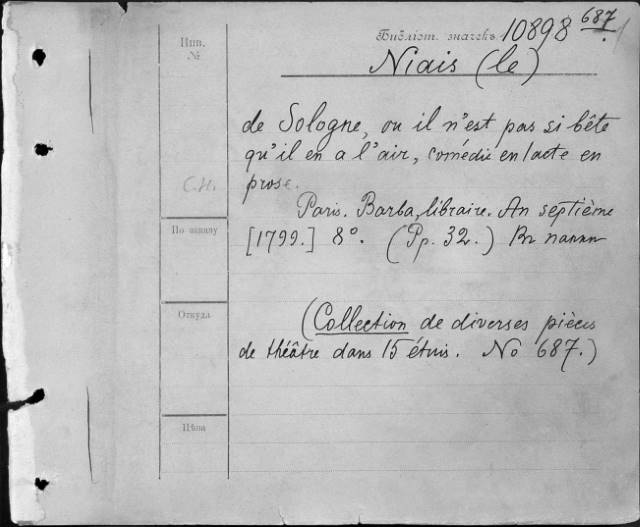 Библіот. значекъ 10898 687
Инв.
№
Niais (le)
de Sologne, ou il n'est pas si bête
qu'il en a l'air, comédie en 1 acte en
С.Н.
prose.
Paris. Barba, libraire. An septième
По заказу
[1799.] 8°. (Pp. 32.) Въ папкѣ
Откуда
(Collection de diverses pièces
de théâtre dans 15 étuis. No 687.)
Цѣна